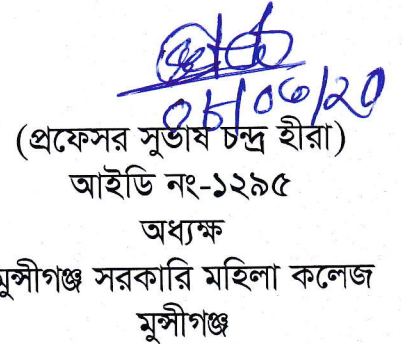 (প্রফেসর সুভাষ চন্দ্র হীরা)
আইডি নং-১২৯৫
অধ্যক্ষ
মুন্সীগঞ্জ সরকারি মহিলা কলেজ
মুন্সীগঞ্জ